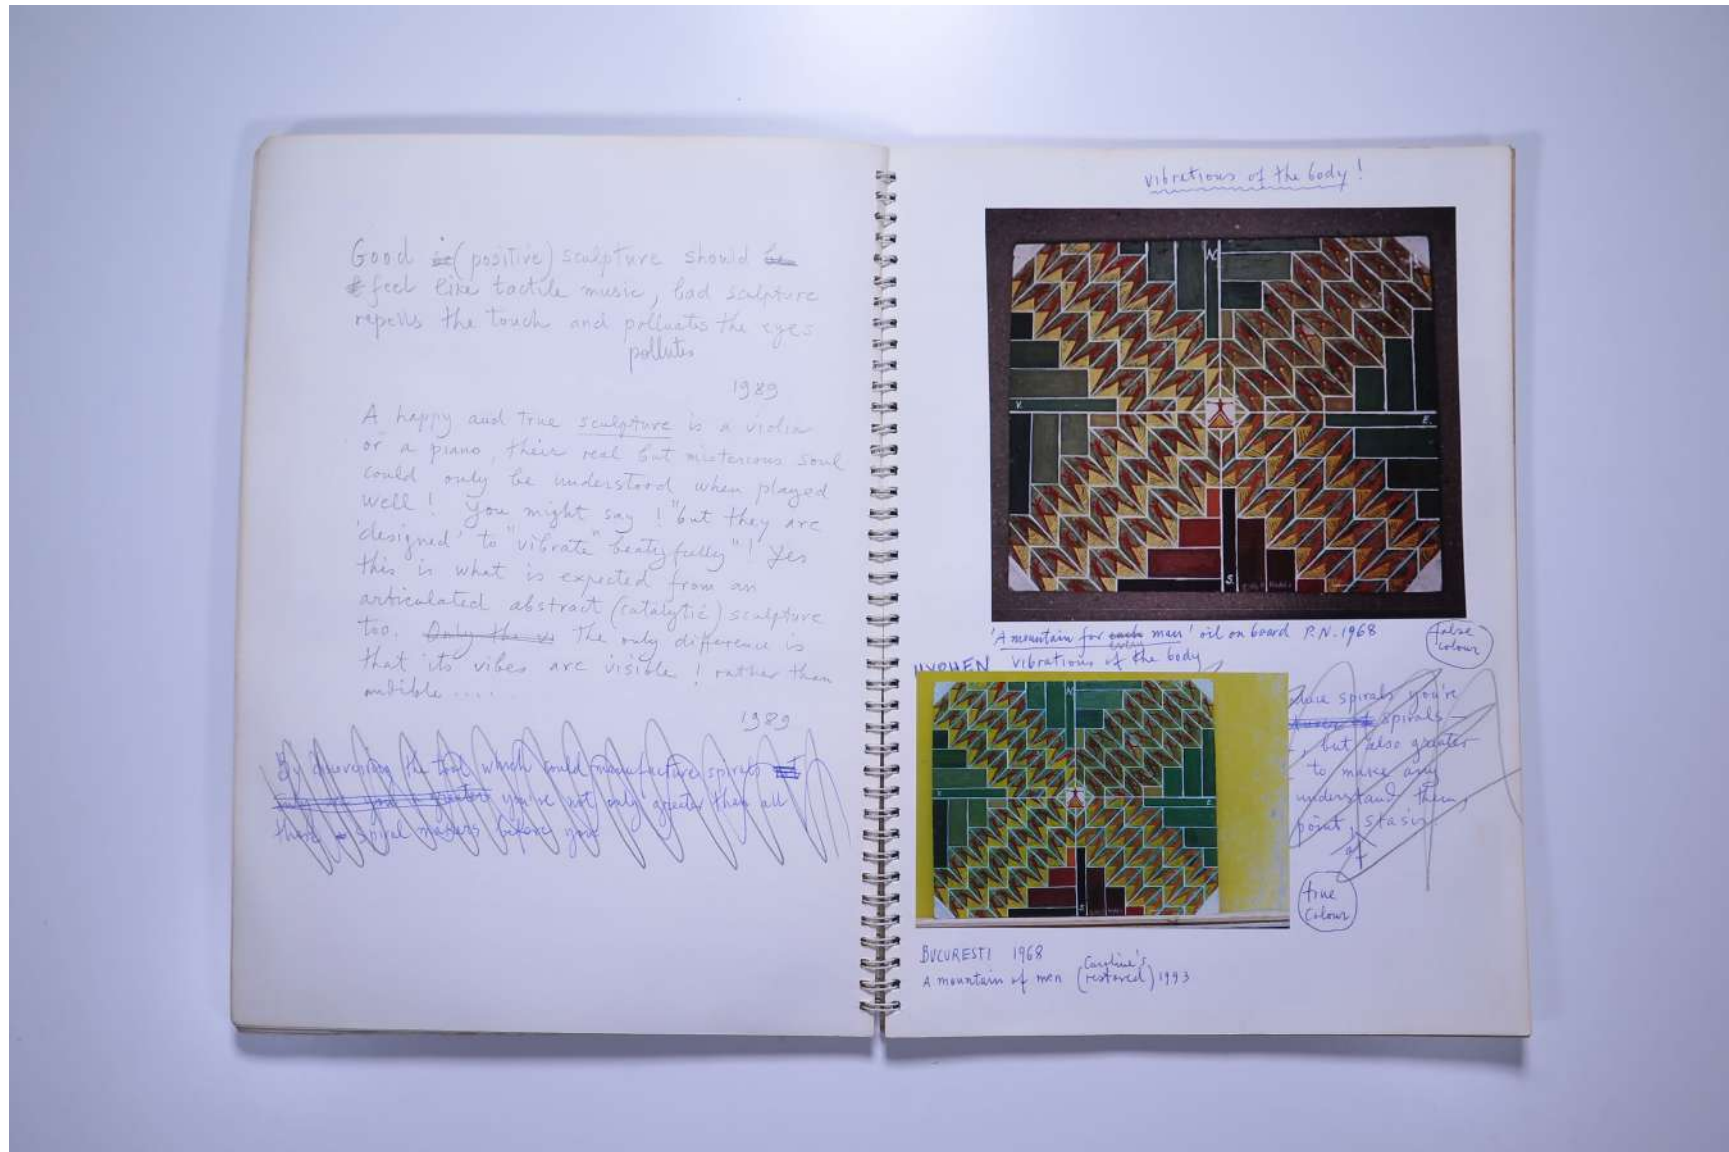 Good is (positive) sculpture should be
feel like tactile music, bad sculpture
repells the touch and polluates the eyes
pollutes
1989
A happy and true sculpture is a violin
or a piano, their real but misterious soul
could only be understood when played
well! You might say! "but they are
'designed' to "vibrate" beatyfully"! Yes
this is what is expected from an
articulated abstract (catalytic) sculpture
too. Only the vi The only difference is
that its vibes are visible! rather than
audible ....
1989
By discovering the tool which could manufacture spirals
you've not only greater than all
these spiral makers before you
vibrations of the body!
N.
V.
E.
S.
'A mountain for each man' oil on board P.N. 1968
false colour
HYPHEN vibrations of the body
spirals you're
spirals —
, but also greater
to make any
understand them,
point, stasis
of
true
colour
BUCURESTI 1968
A mountain of men (Caroline's restored) 1993